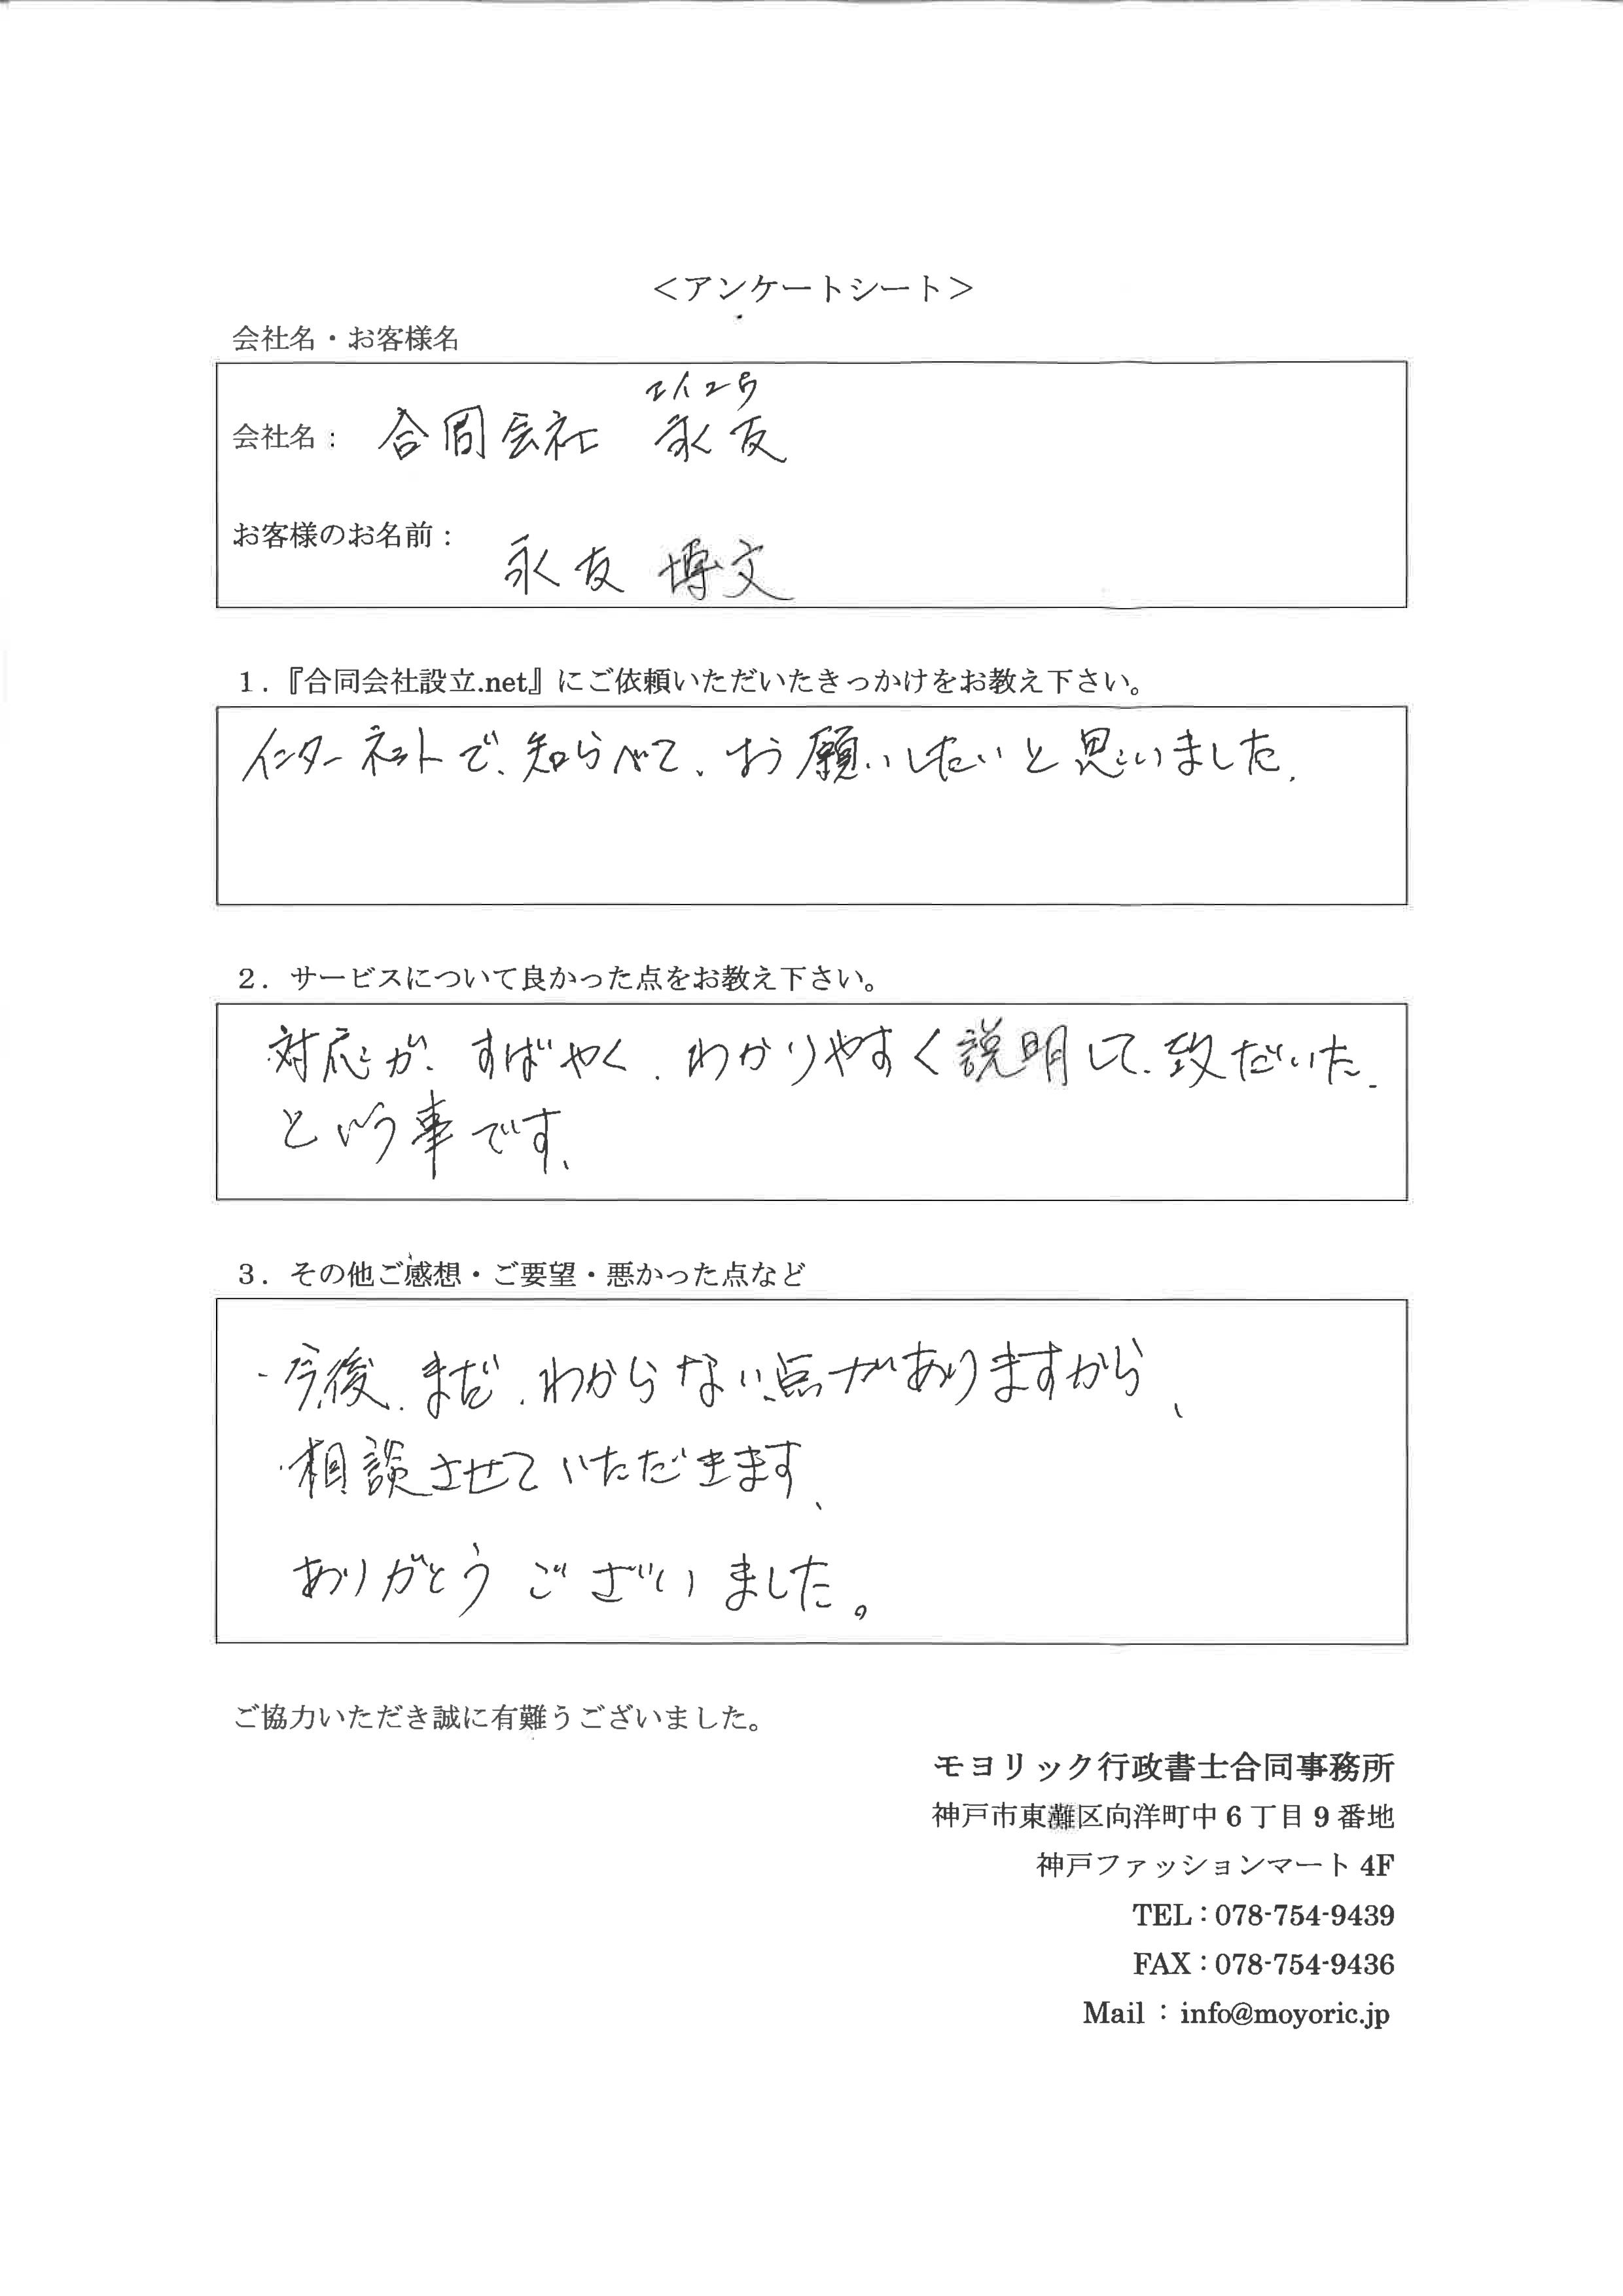 ＜アンケートシート＞
会社名・お客様名
エイユウ
会社名： 合同会社 永友
お客様のお名前：
永友 博文
１．『合同会社設立.net』にご依頼いただいたきっかけをお教え下さい。
インターネットで、知らべて、お願いしたいと思いました.
２．サービスについて良かった点をお教え下さい。
対応が、すばやく、わかりやすく説明して、致だいた.
という事です、
３．その他ご感想・ご要望・悪かった点など
・今後、まだ、わからない点がありますから、
・相談させていただきます、
ありがとうございました。
ご協力いただき誠に有難うございました。
モヨリック行政書士合同事務所
神戸市東灘区向洋町中 6 丁目 9 番地
神戸ファッションマート 4F
TEL：078-754-9439
FAX：078-754-9436
Mail ： info@moyoric.jp